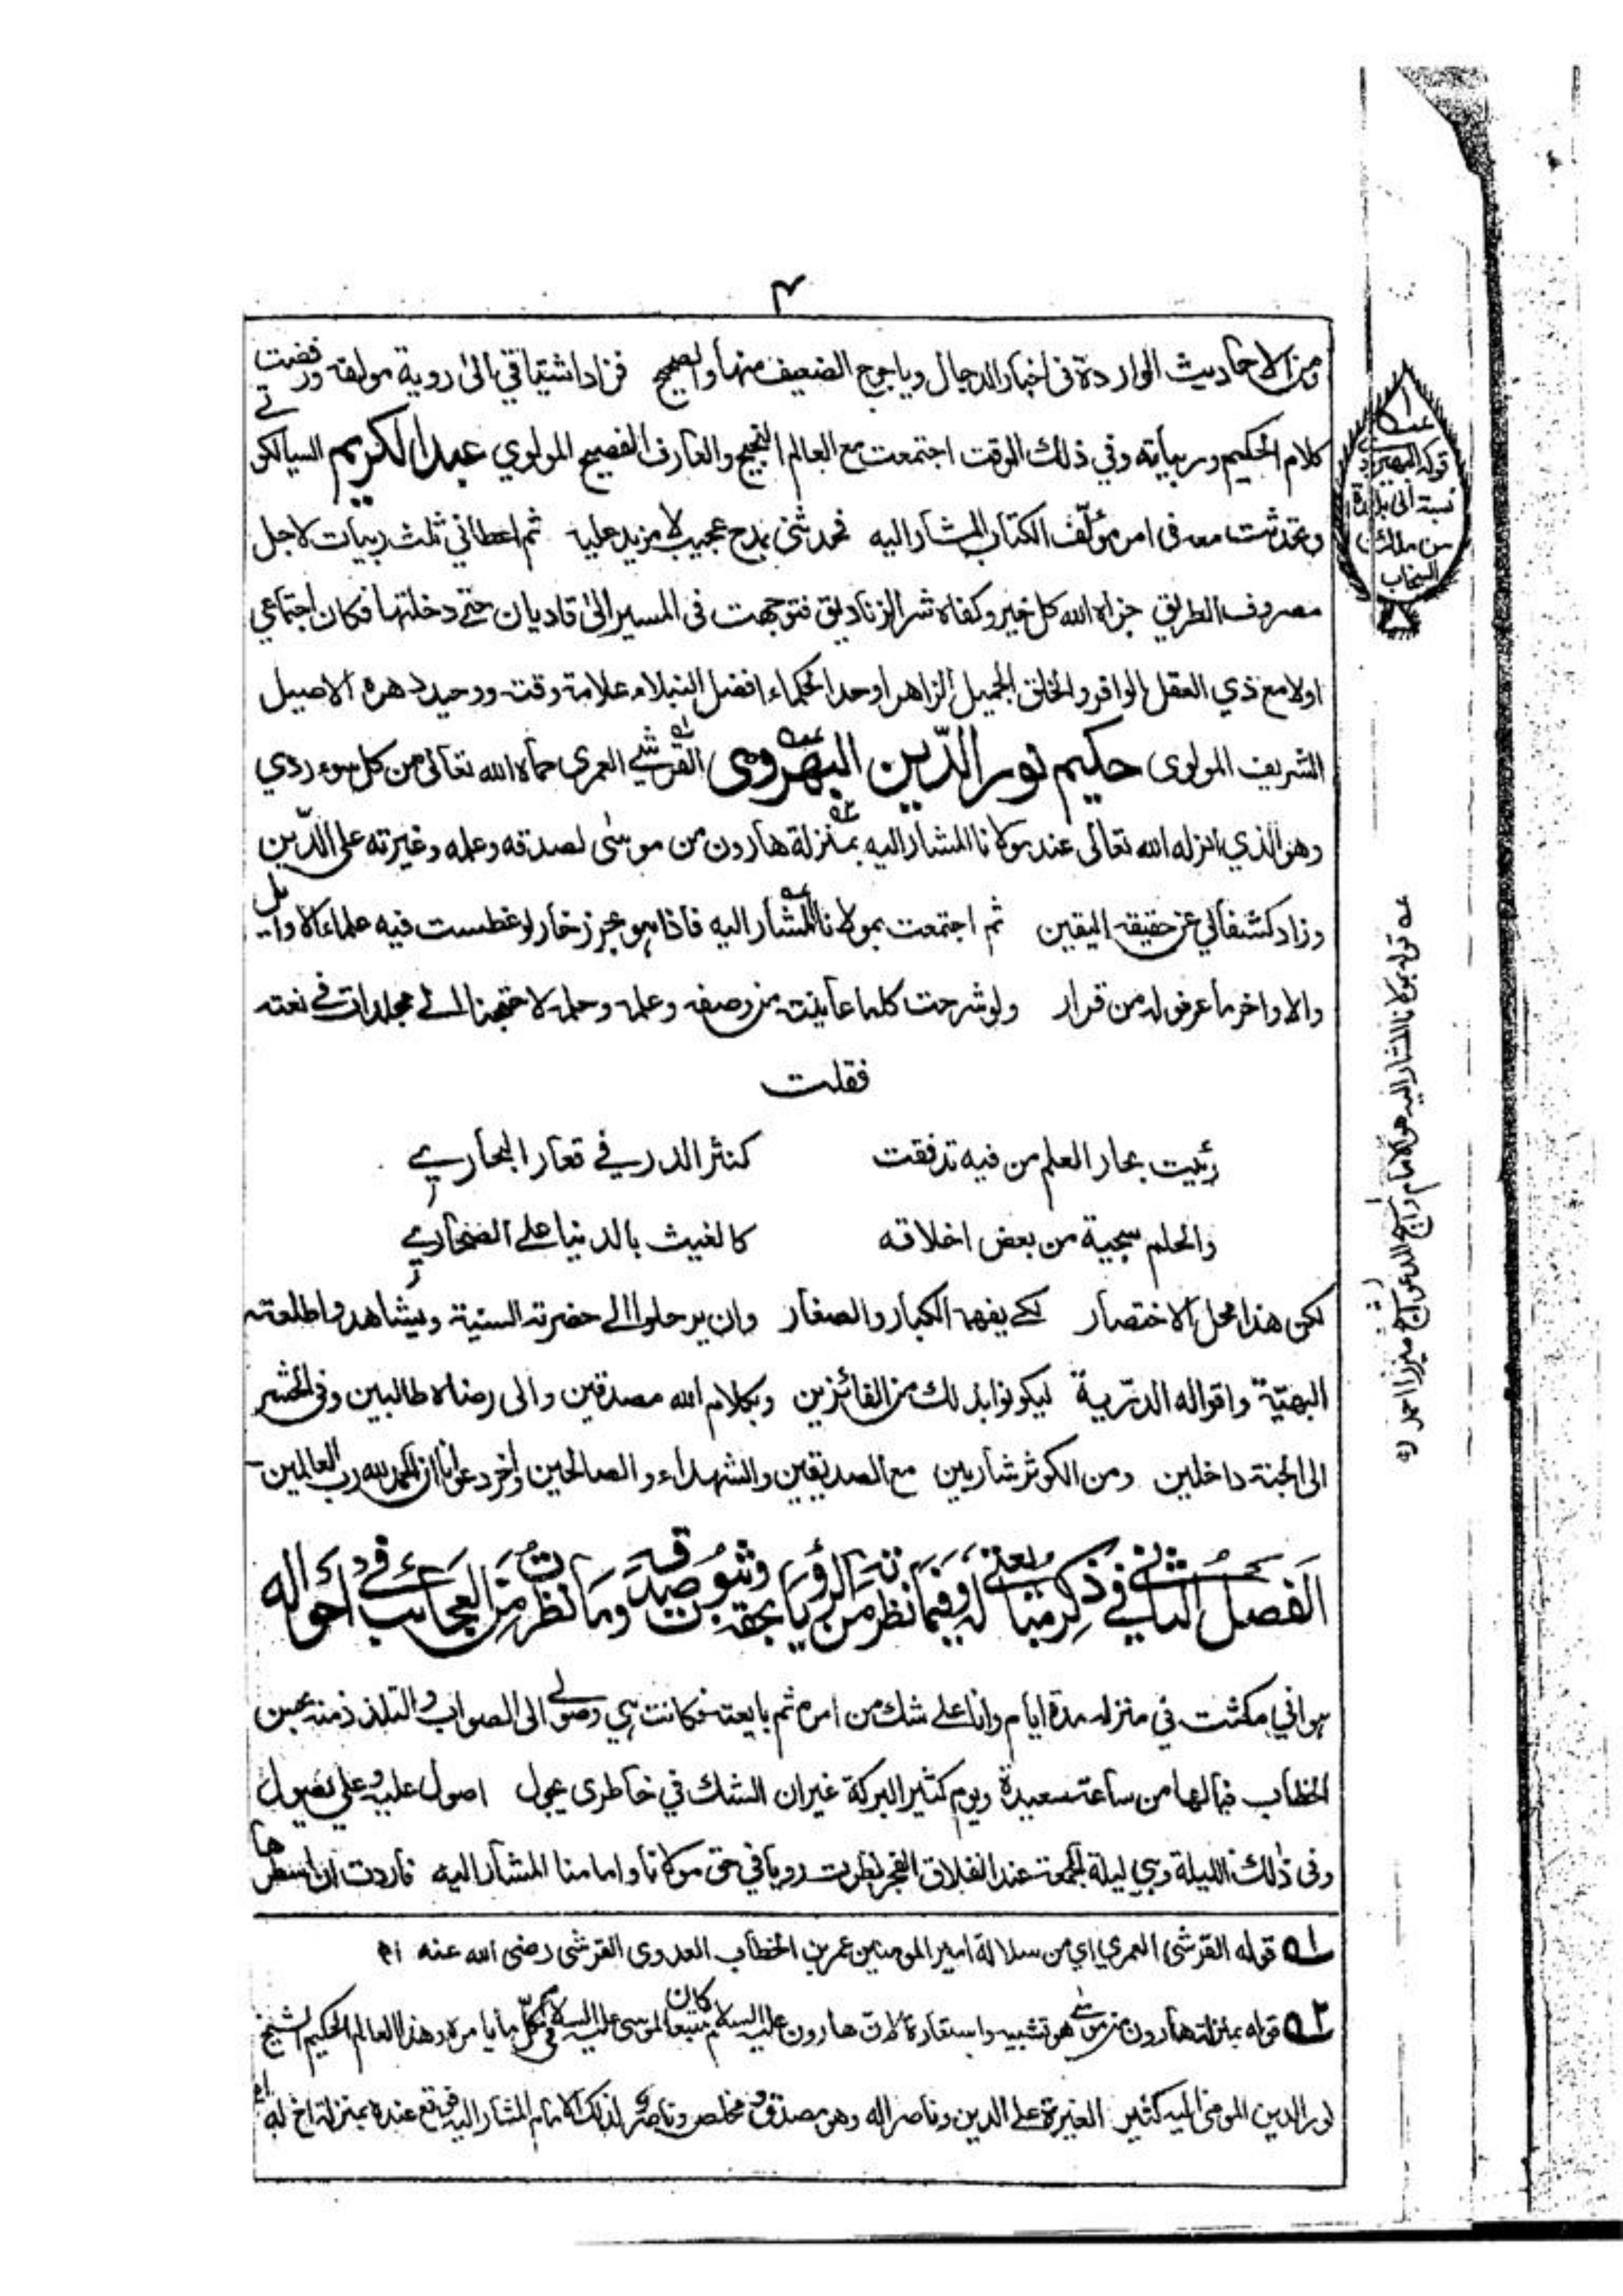 ٤
ومن الاحاديث الواردة فی اخبار الدجال وياجوج الضعيف منها والصحيح فزاد اشتياقي الى روية مولفه ورفضت
كلام الحكيم وربياته وفي ذلك الوقت اجتمعت مع العالم النجيح والعارف الفصيح المولوي عبد الكريم السيالكوتے
وتحدثت معه فی امر مؤلّف الكتاب المشار اليه فحدثنی بمدح عجيب لا مزيد عليه ثم اعطاني ثلث ربيات لاجل
مصروف الطريق جزاه الله كل خير وكفاه شر الزناديق فتوجهت فی المسير الىٰ قاديان حتے دخلتها فكان اجتماعي
اولا مع ذي العقل الوافر والخلق الجميل الزاهر اوحد الحكماء افضل النبلاء علامة وقته ووحيد دهره الاصيل
الشريف المولوی حكيم نور الدّين البهَيروی القرشے العمري حماه الله تعالیٰ من كل سوء ردي
وهو الذي انزله الله تعالیٰ عند مولانا المشار اليه بمنزلة هارون من موسٰی لصدقه وعلمه وغيرته علی الدّين
وزاد كشفا لي عن حقيقة اليقين ثم اجتمعت بمولانا المشار اليه فاذا هو بحر زخار لو غطست فيه علماء الاوائل
والاواخر ما عرفوا له من قرار ولو شرحت كلما عاينته من وصفه وعلمه وحلمه لاحتجنا الے مجلدات فے نعته
فقلت
رئيت بحار العلم من فيه تدفقت كنثر الدر فے قعار البحارے
والحلم سجية من بعض اخلاقه كالغيث بالدنيا علے الصحارے
لكن هذا محل الاختصار لكے يفهمه الكبار والصغار وان يرحلوا الے حضرته السنية ويشاهدوا طلعته
البهيّة واقواله الدرّية ليكونوا بذلك من الفائزين وبكلام الله مصدقين والى رضاه طالبين وفی الحشر
الى الجنة داخلين ومن الكوثر شاربين مع الصديقين والشهداء والصالحين واٰخر دعوانا ان الحمد لله رب العالمين
الفصل الثاني فے ذكر مبايعتي له وفيما نظرته من الرؤيا بحقه وثبوت صدقه وما نظرت من العجائب فے احواله
هو اني مكثت في منزله مدة ايام وانا علے شك من امره ثم بايعته فكانت هي وصولے الى الصواب والتلذذ منه بحسن
الخطاب فيالها من ساعة سعيدة ويوم كثير البركة غير ان الشك في خاطری يجول اصول عليه وعلي يصول
وفی ذلك الليلة وهي ليلة الجمعة عند انفلاق الفجر نظرت رويا في حق مولانا وامامنا المشار اليه فاردت ان اسطرها
١ قوله القرشی العمري اي من سلالة امير المومنين عمر بن الخطاب العدوی القرشی رضی الله عنه ١م
٢ قوله بمنزلة هارون من موسٰے هو تشبيه واستعارة لان هارون عليه السلام كان متبعا لموسی عليه السلام في كلّ ما يامره وهذا العالم الحكيم الشيخ
نور الدين المومی اليه كثير الغيرة علے الدين وناصرا له وهو مصدّق ومخلص وناصر لذلك الامام المشار اليه فوقع عنده بمنزلة اخ له ١م
عـه
قوله البهيروی
نسبة الى بلدة
من ملك
البنجاب
عـه قوله بمولانا المشار اليه هو الامام